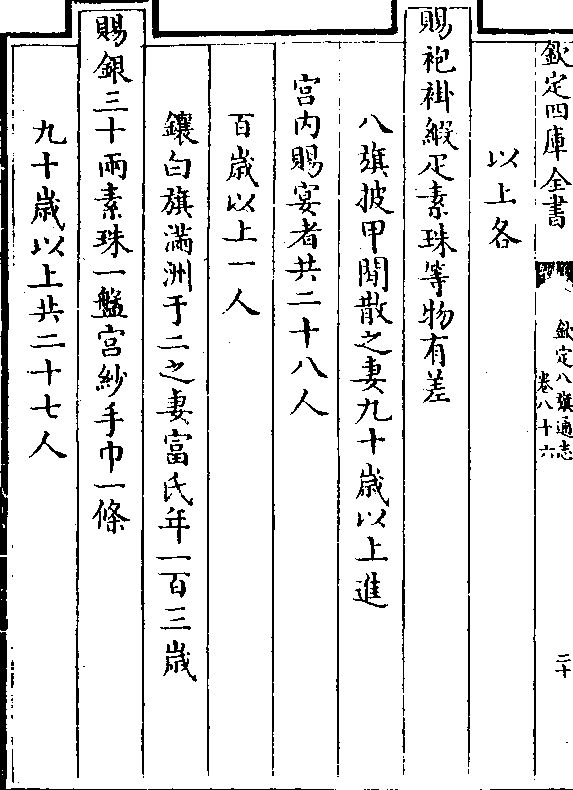 欽定四庫全書
欽定八旗通志
卷八十六
二十
以上各
賜袍褂緞疋素珠等物有差
八旗披甲閒散之妻九十歲以上進
宮内賜宴者共二十八人
百歲以上一人
鑲白旗滿洲于二之妻富氏年一百三歲
賜銀三十兩素珠一盤宮紗手巾一條
九十歲以上共二十七人